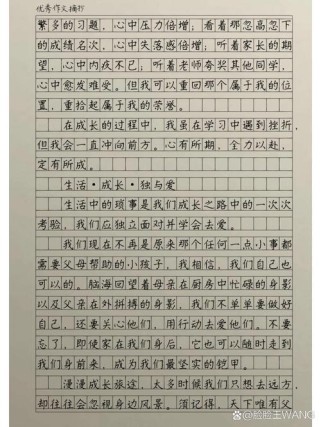 优秀作文摘抄
繁多的习题，心中压力倍增；看着那忽高忽下
的成绩名次，心中失落感倍增；听着家长的期
望，心中内疚不已；听着老师夸奖其他同学，
心中愈发难受。但我可以重回那个属于我的位
置，重拾起属于我的荣誉。
在成长的过程中，我虽在学习中遇到挫折，
但我会一直冲向前方。心有所期，全力以赴，
定有所成。
生活·成长·独与爱
生活中的琐事是我们成长之路中的一次次
考验，我们应独立面对并学会去爱。
我们现在不再是原来那个任何一点小事都
需要父母帮助的小孩子，我相信，我们自己也
可以的。脑海回望着母亲在厨房中忙碌的身影
以及父亲在外拼搏的身影，我们不单单要做好
自己，还要关心他们，用行动去爱他们。不要
忘了，即使家在我们身后，它也可以随时走到
我们身前来，成为我们最坚实的铠甲。
漫漫成长旅途，太多时候我们只想去远方，
却往往会忽视身边风景。须记得，天下唯有父
@脸脸王WANG